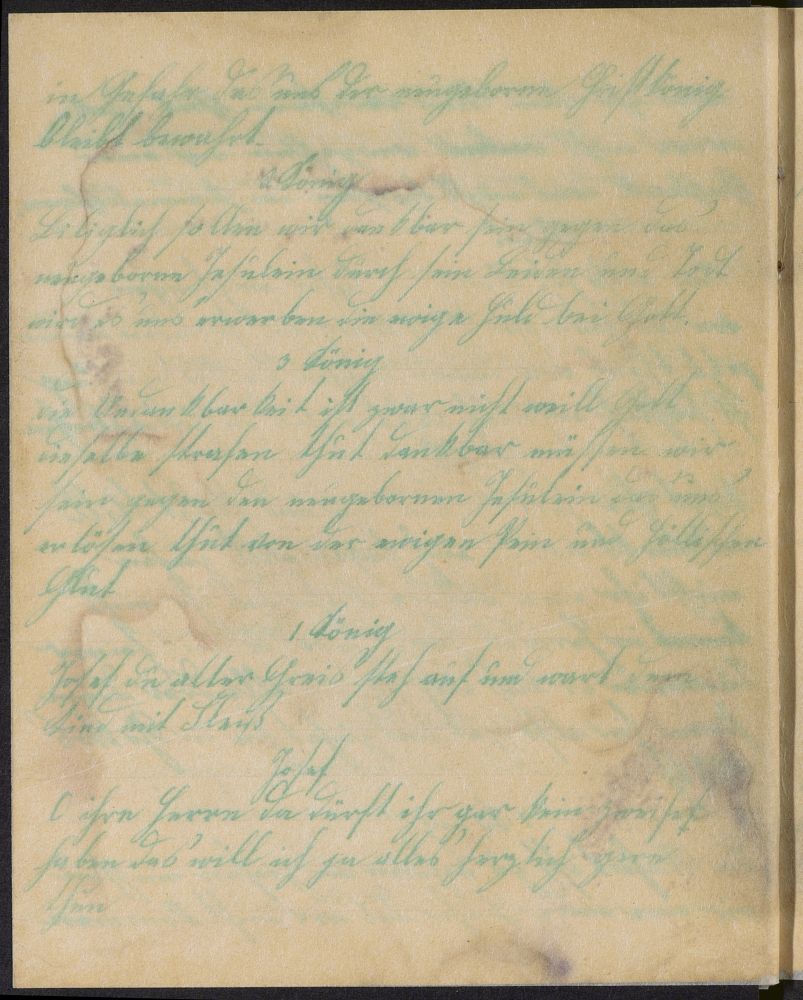 in Gefahr das uns der neugeborne Christkönig
bleibt bewahrt.
2 König
Billiglich sollen wir dankbar sein gegen das
neugeborne Jesulein durch sein Leiden und Todt
wird es uns erwerben die ewige Huld bei Gott.
3 König
die Undankbarkeit ist zwar nicht weill Gott
dieselbe strafen thut dankbar müssen wir
sein gegen den neugebornen Jesulein das uns
erlösen thut von der ewigen Pein und höllischen
Glut
1 König
Josef du alter Greis steh auf und wart dem
Kind mit Fleiß
Josef
O ihre Herrn da dürft ihr gar kein zweifel
haben das will ich ja alles herzlich gern
thun